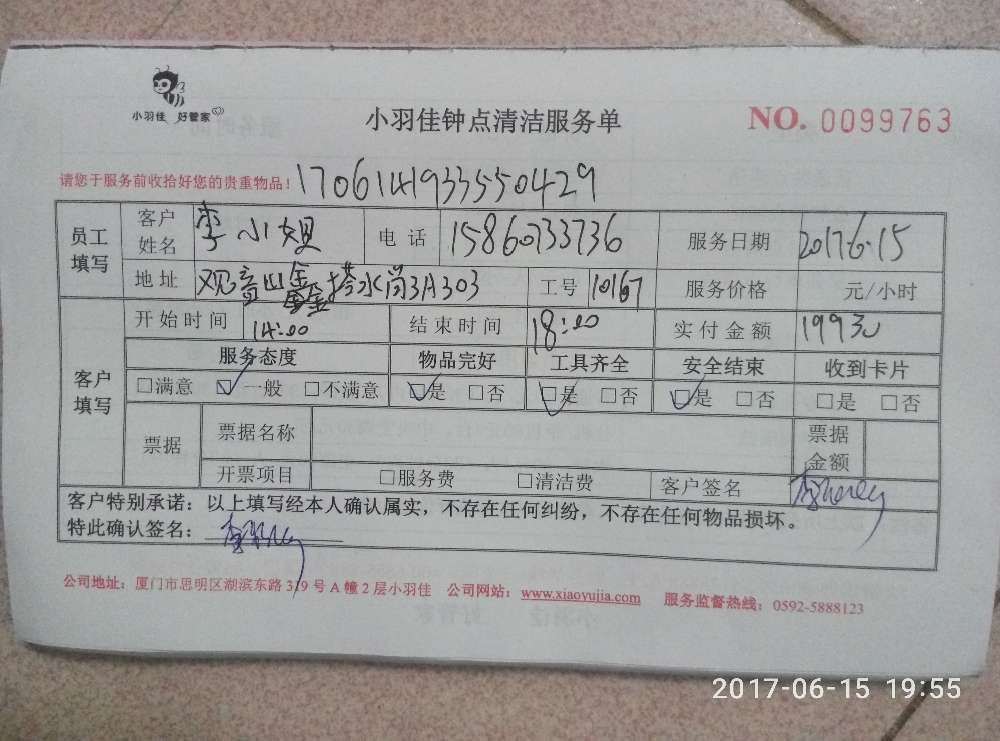 小羽佳 好管家
小羽佳钟点清洁服务单
NO. 0099763
请您于服务前收拾好您的贵重物品！ 1706141933550429
员工填写 客户姓名 李小姐 电话 15860733736 服务日期 2017.6.15
地址 观音山 塔水尚3A303 工号 10167 服务价格 元/小时
客户填写 开始时间 14:00 结束时间 18:00 实付金额 199元
服务态度 物品完好 工具齐全 安全结束 收到卡片
□满意 ☑一般 □不满意 ☑是 □否 ☑是 □否 ☑是 □否 □是 □否
票据 票据名称 票据金额
开票项目 □服务费 □清洁费 客户签名
客户特别承诺：以上填写经本人确认属实，不存在任何纠纷，不存在任何物品损坏。
特此确认签名：
公司地址：厦门市思明区湖滨东路319号A幢2层小羽佳 公司网站：www.xiaoyujia.com 服务监督热线：0592-5888123
2017-06-15 19:55